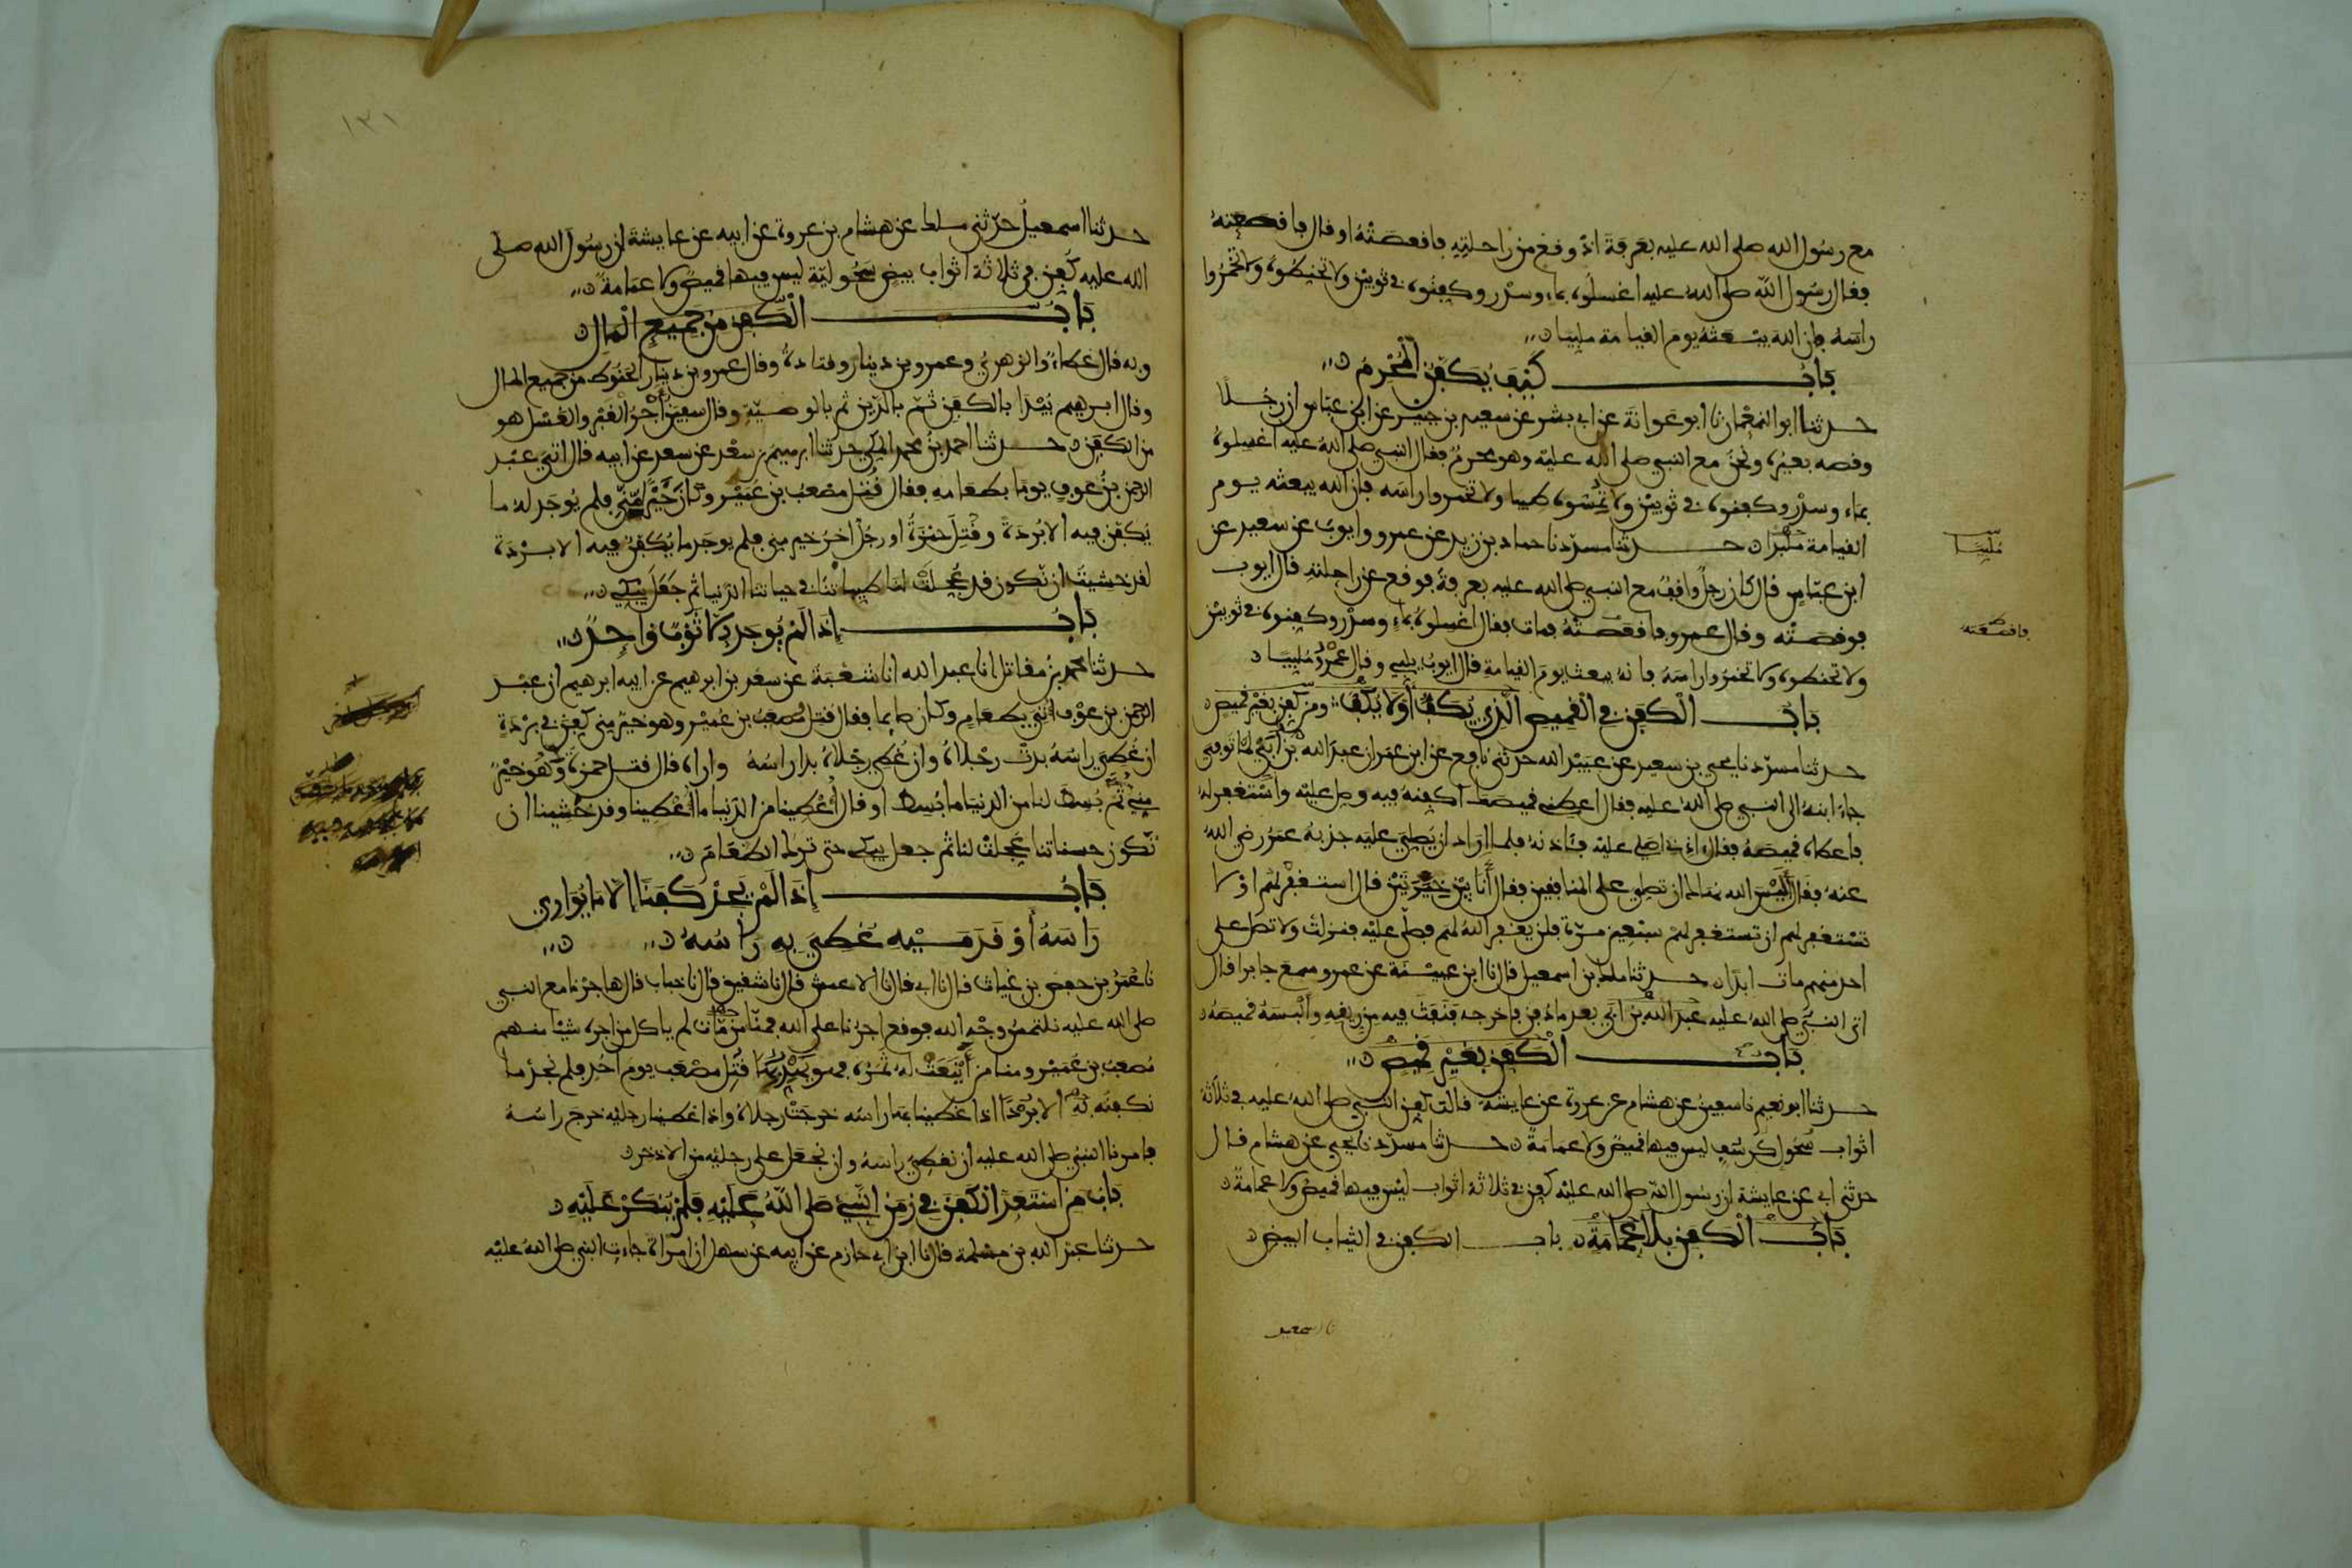 مع رسول الله صلى الله عليه بعرفة اذ وقع من راحلته فاقصعته او قال فاقعصته
فقال رسول الله صلى الله عليه اغسلوه بماء وسدر وكفنوه في ثوبين ولا تحنطوه ولا تخمروا
راسه فان الله يبعثه يوم القيامة ملبيا
باب كيف يكفن المحرم
حدثنا ابو النعمان نا ابو عوانة عن ابي بشر عن سعيد بن جبير عن ابن عباس ان رجلا
وقصه بعيره ونحن مع النبي صلى الله عليه وهو محرم فقال النبي صلى الله عليه اغسلوه
بماء وسدر وكفنوه في ثوبين ولا تمسوه طيبا ولا تخمروا راسه فان الله يبعثه يوم
القيامة ملبدا حدثنا مسدد نا حماد بن زيد عن عمرو وايوب عن سعيد عن
ملبيا
ابن عباس قال كان رجل واقف مع النبي صلى الله عليه بعرفة فوقع عن راحلته قال ايوب
فوقصته وقال عمرو فاقعصته فمات فقال اغسلوه بماء وسدر وكفنوه في ثوبين
فاقصعته
ولا تحنطوه ولا تخمروا راسه فانه يبعث يوم القيامة قال ايوب يلبي وقال عمرو ملبيا
باب الكفن في القميص الذي يكف او لا يكف ومن كفن بغير قميص
حدثنا مسدد نا يحيى بن سعيد عن عبيد الله حدثني نافع عن ابن عمر ان عبد الله بن ابي لما توفي
جاء ابنه الى النبي صلى الله عليه فقال اعطني قميصك اكفنه فيه وصل عليه واستغفر له
فاعطاه قميصه فقال اذني اصلي عليه فئاذنه فلما اراد ان يصلي عليه جذبه عمر رضي الله
عنه فقال اليس الله نهاك ان تصلي على المنافقين فقال انا بين خيرتين قال استغفر لهم او لا
تستغفر لهم ان تستغفر لهم سبعين مرة فلن يغفر الله لهم فصلى عليه فنزلت ولا تصل على
احد منهم مات ابدا حدثنا ملك بن اسمعيل قال نا ابن عيينة عن عمرو سمع جابرا قال
اتى النبي صلى الله عليه عبد الله بن ابي بعد ما دفن فاخرجه فنفث فيه من ريقه والبسه قميصه
باب الكفن بغير قميص
حدثنا ابو نعيم نا سفين عن هشام عن عروة عن عايشة قالت كفن النبي صلى الله عليه في ثلاثة
اثواب سحول كرسف ليس فيها قميص ولا عمامة حدثنا مسدد نا يحيى عن هشام قال
حدثني ابي عن عايشة ان رسول الله صلى الله عليه كفن في ثلاثة اثواب ليس فيها قميص ولا عمامة
باب الكفن بلا عمامة باب الكفن في الثياب البيض
١٣١
حدثنا اسمعيل حدثني ملك عن هشام بن عروة عن ابيه عن عايشة ان رسول الله صلى
الله عليه كفن في ثلاثة اثواب بيض سحولية ليس فيها قميص ولا عمامة
باب الكفن من جميع المال
وبه قال عطاء والزهري وعمرو بن دينار وقتادة وقال عمرو بن دينار الحنوط من جميع المال
وقال ابرهيم يبدا بالكفن ثم بالدين ثم بالوصية وقال سفين اجر القبر والغسل هو
من الكفن حدثنا احمد بن محمد المكي حدثنا ابرهيم بن سعد عن سعد عن ابيه قال اتي عبد
الرحمن بن عوف يوما بطعامه فقال قتل مصعب بن عمير وكان خيرا مني فلم يوجد له ما
يكفن فيه الا بردة وقتل حمزة او رجل اخر خير مني فلم يوجد ما يكفن فيه الا بردة
لقد خشيت ان تكون قد عجلت لنا طيباتنا في حياتنا الدنيا ثم جعل يبكي
باب اذا لم يوجد الا ثوب واحد
حدثنا محمد بن مقاتل انا عبد الله انا شعبة عن سعد بن ابرهيم عن ابيه ابرهيم ان عبد
الرحمن بن عوف اتي بطعام وكان صايما فقال قتل مصعب بن عمير وهو خير مني كفن في بردة
ان غطي راسه بدت رجلاه وان غطي رجلاه بدا راسه واراه قال قتل حمزة وهو خير
مني ثم بسط لنا من الدنيا ما بسط او قال اعطينا من الدنيا ما اعطينا وقد خشينا ان
تكون حسناتنا عجلت لنا ثم جعل يبكي حتى ترك الطعام
باب اذا لم يجد كفنا الا ما يواري
راسه او قدميه غطي به راسه
نا عمر بن حفص بن غياث قال نا ابي قال نا الاعمش قال نا شقيق قال نا خباب قال هاجرنا مع النبي
صلى الله عليه نلتمس وجه الله فوقع اجرنا على الله فمنا من مات لم ياكل من اجره شيئا منهم
مصعب بن عمير ومنا من اينعت له ثمرته فهو يهدبها قتل مصعب يوم احد فلم نجد ما
نكفنه به الا بردة اذا غطينا بها راسه خرجت رجلاه واذا غطينا رجليه خرج راسه
فامرنا النبي صلى الله عليه ان نغطي راسه وان نجعل على رجليه من الاذخر
باب من استعد الكفن في زمن النبي صلى الله عليه فلم ينكر عليه
حدثنا عبد الله بن مسلمة قال نا ابن ابي حازم عن ابيه عن سهل ان امراة جاءت النبي صلى الله عليه